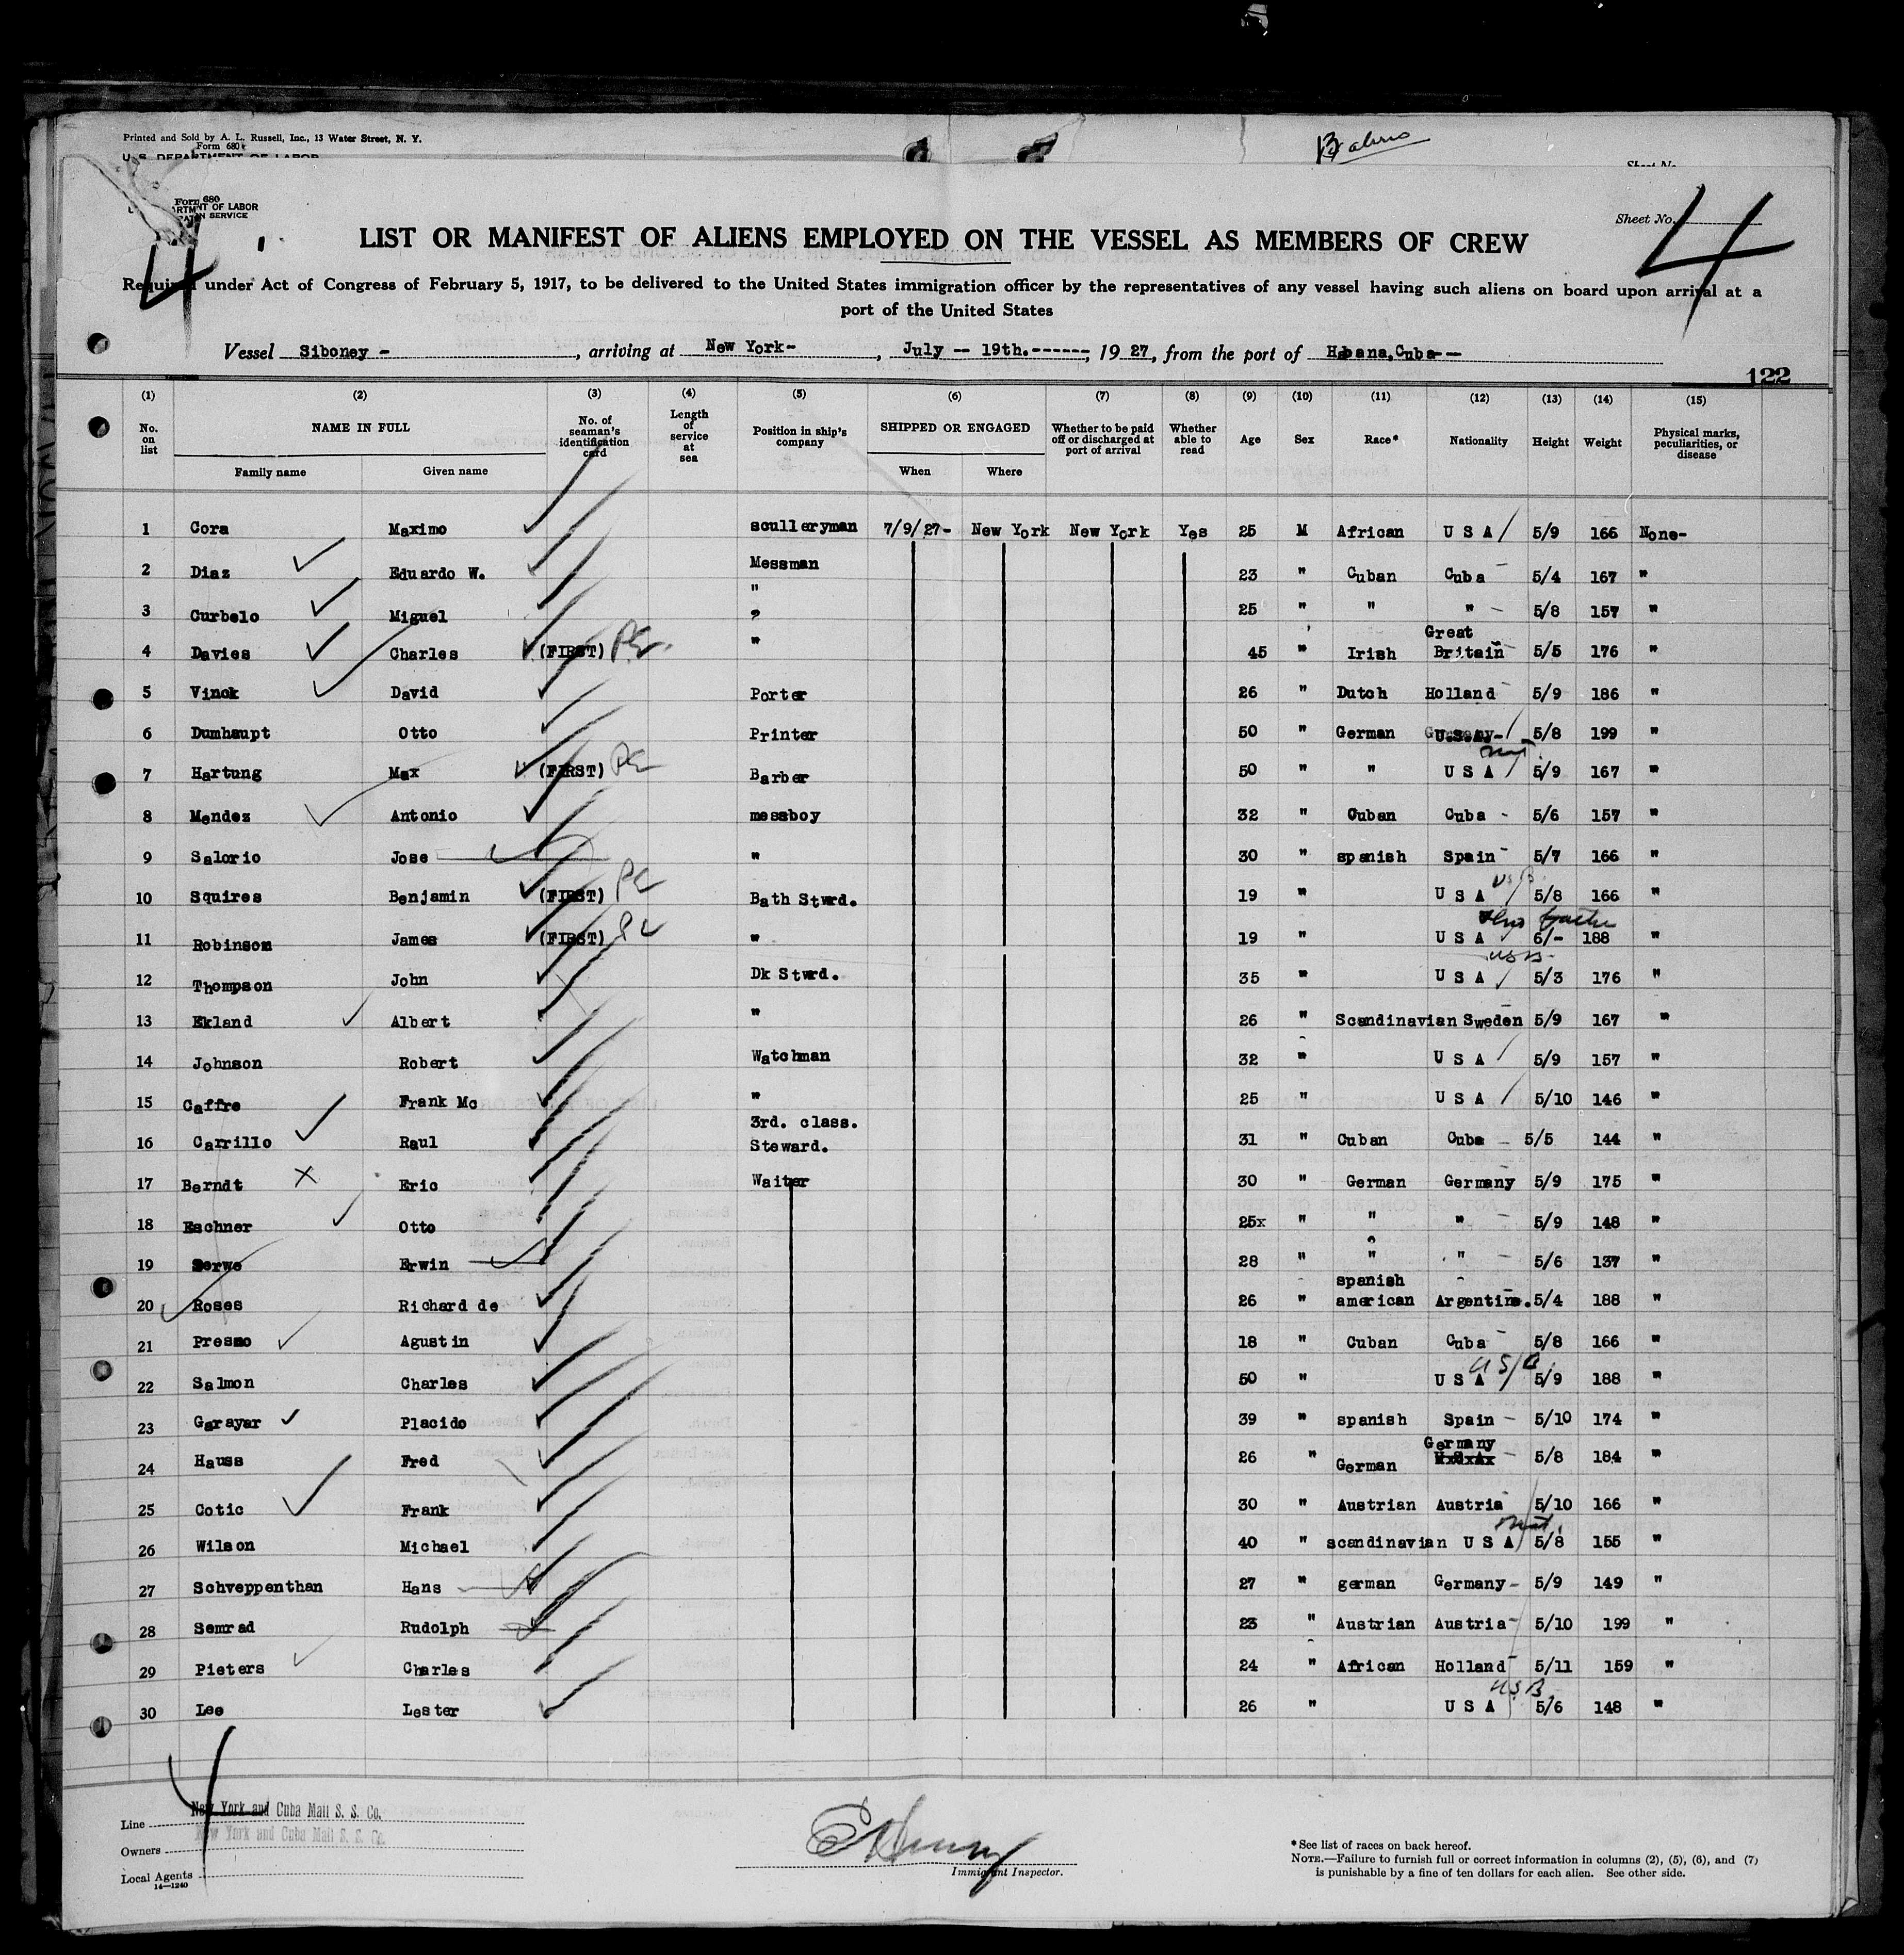 Printed and Sold by A. L. Russell, Inc., 13 Water Street, N. Y.
Form 680
U. S. DEPARTMENT OF LABOR
Sheet No.
Form 680
ARTMENT OF LABOR
SERVICE
Sheet No. 4
4
LIST OR MANIFEST OF ALIENS EMPLOYED ON THE VESSEL AS MEMBERS OF CREW
Required under Act of Congress of February 5, 1917, to be delivered to the United States immigration officer by the representatives of any vessel having such aliens on board upon arrival at a
port of the United States
Vessel Siboney - , arriving at New York- , July -- 19th.------, 1927, from the port of Habana,Cuba--
122
(1) (2) (3) (4) (5) (6) (7) (8) (9) (10) (11) (12) (13) (14) (15)
No. on list NAME IN FULL Family name Given name No. of seaman's identification card Length of service at sea Position in ship's company SHIPPED OR ENGAGED When Where Whether to be paid off or discharged at port of arrival Whether able to read Age Sex Race* Nationality Height Weight Physical marks, peculiarities, or disease
1 Cora Maximo sculleryman 7/9/27- New York New York Yes 25 M African U S A 5/9 166 None-
2 Diaz Eduardo W. Messman 23 " Cuban Cuba 5/4 167 "
3 Curbelo Miguel " ? 25 " " " 5/8 157 "
4 Davies Charles (FIRST) PE " 45 " Irish Great Britain 5/5 176 "
5 Vinck David Porter 26 " Dutch Holland 5/9 186 "
6 Dumhaupt Otto Printer 50 " German U.S.A.- 5/8 199 "
7 Hartung Max (FIRST) PE Barber 50 " " U S A 5/9 167 "
8 Mendez Antonio messboy 32 " Cuban Cuba - 5/6 157 "
9 Salorio Jose " 30 " spanish Spain 5/7 166 "
10 Squires Benjamin (FIRST) PE Bath Stwrd. 19 " U S A 5/8 166 "
11 Robinson James (FIRST) " 19 " U S A 6/- 188 "
12 Thompson John Dk Stwrd. 35 " U S A USB 5/3 176 "
13 Ekland Albert " 26 " Scandinavian Sweden 5/9 167 "
14 Johnson Robert Watchman 32 " U S A 5/9 157 "
15 Caffre Frank Mc " 25 " U S A 5/10 146 "
16 Carrillo Raul 3rd. class. Steward. 31 " Cuban Cuba 5/5 144 "
17 Berndt Eric Waiter 30 " German Germany 5/9 175 "
18 Eschner Otto 25x " " " 5/9 148 "
19 Serwe Erwin 28 " " " 5/6 137 "
20 Roses Richard de 26 " spanish american Argentina. 5/4 188 "
21 Presno Agustin 18 " Cuban Cuba 5/8 166 "
22 Salmon Charles 50 " U S A 5/9 188 "
23 Garayar Placido 39 " spanish Spain 5/10 174 "
24 Hauss Fred 26 " German Germany 5/8 184 "
25 Cotic Frank 30 " Austrian Austria 5/10 166 "
26 Wilson Michael 40 " scandinavian U S A 5/8 155 "
27 Schveppenthan Hans 27 " german Germany- 5/9 149 "
28 Semrad Rudolph 23 " Austrian Austria 5/10 199 "
29 Pieters Charles 24 " African Holland 5/11 159 "
30 Lee Lester 26 " U S A USB 5/6 148 "
Line New York and Cuba Mail S. S. Co.
Owners New York and Cuba Mail S. S. Co.
Local Agents
14—1240
Immigrant Inspector.
*See list of races on back hereof.
NOTE.—Failure to furnish full or correct information in columns (2), (5), (6), and (7)
is punishable by a fine of ten dollars for each alien. See other side.